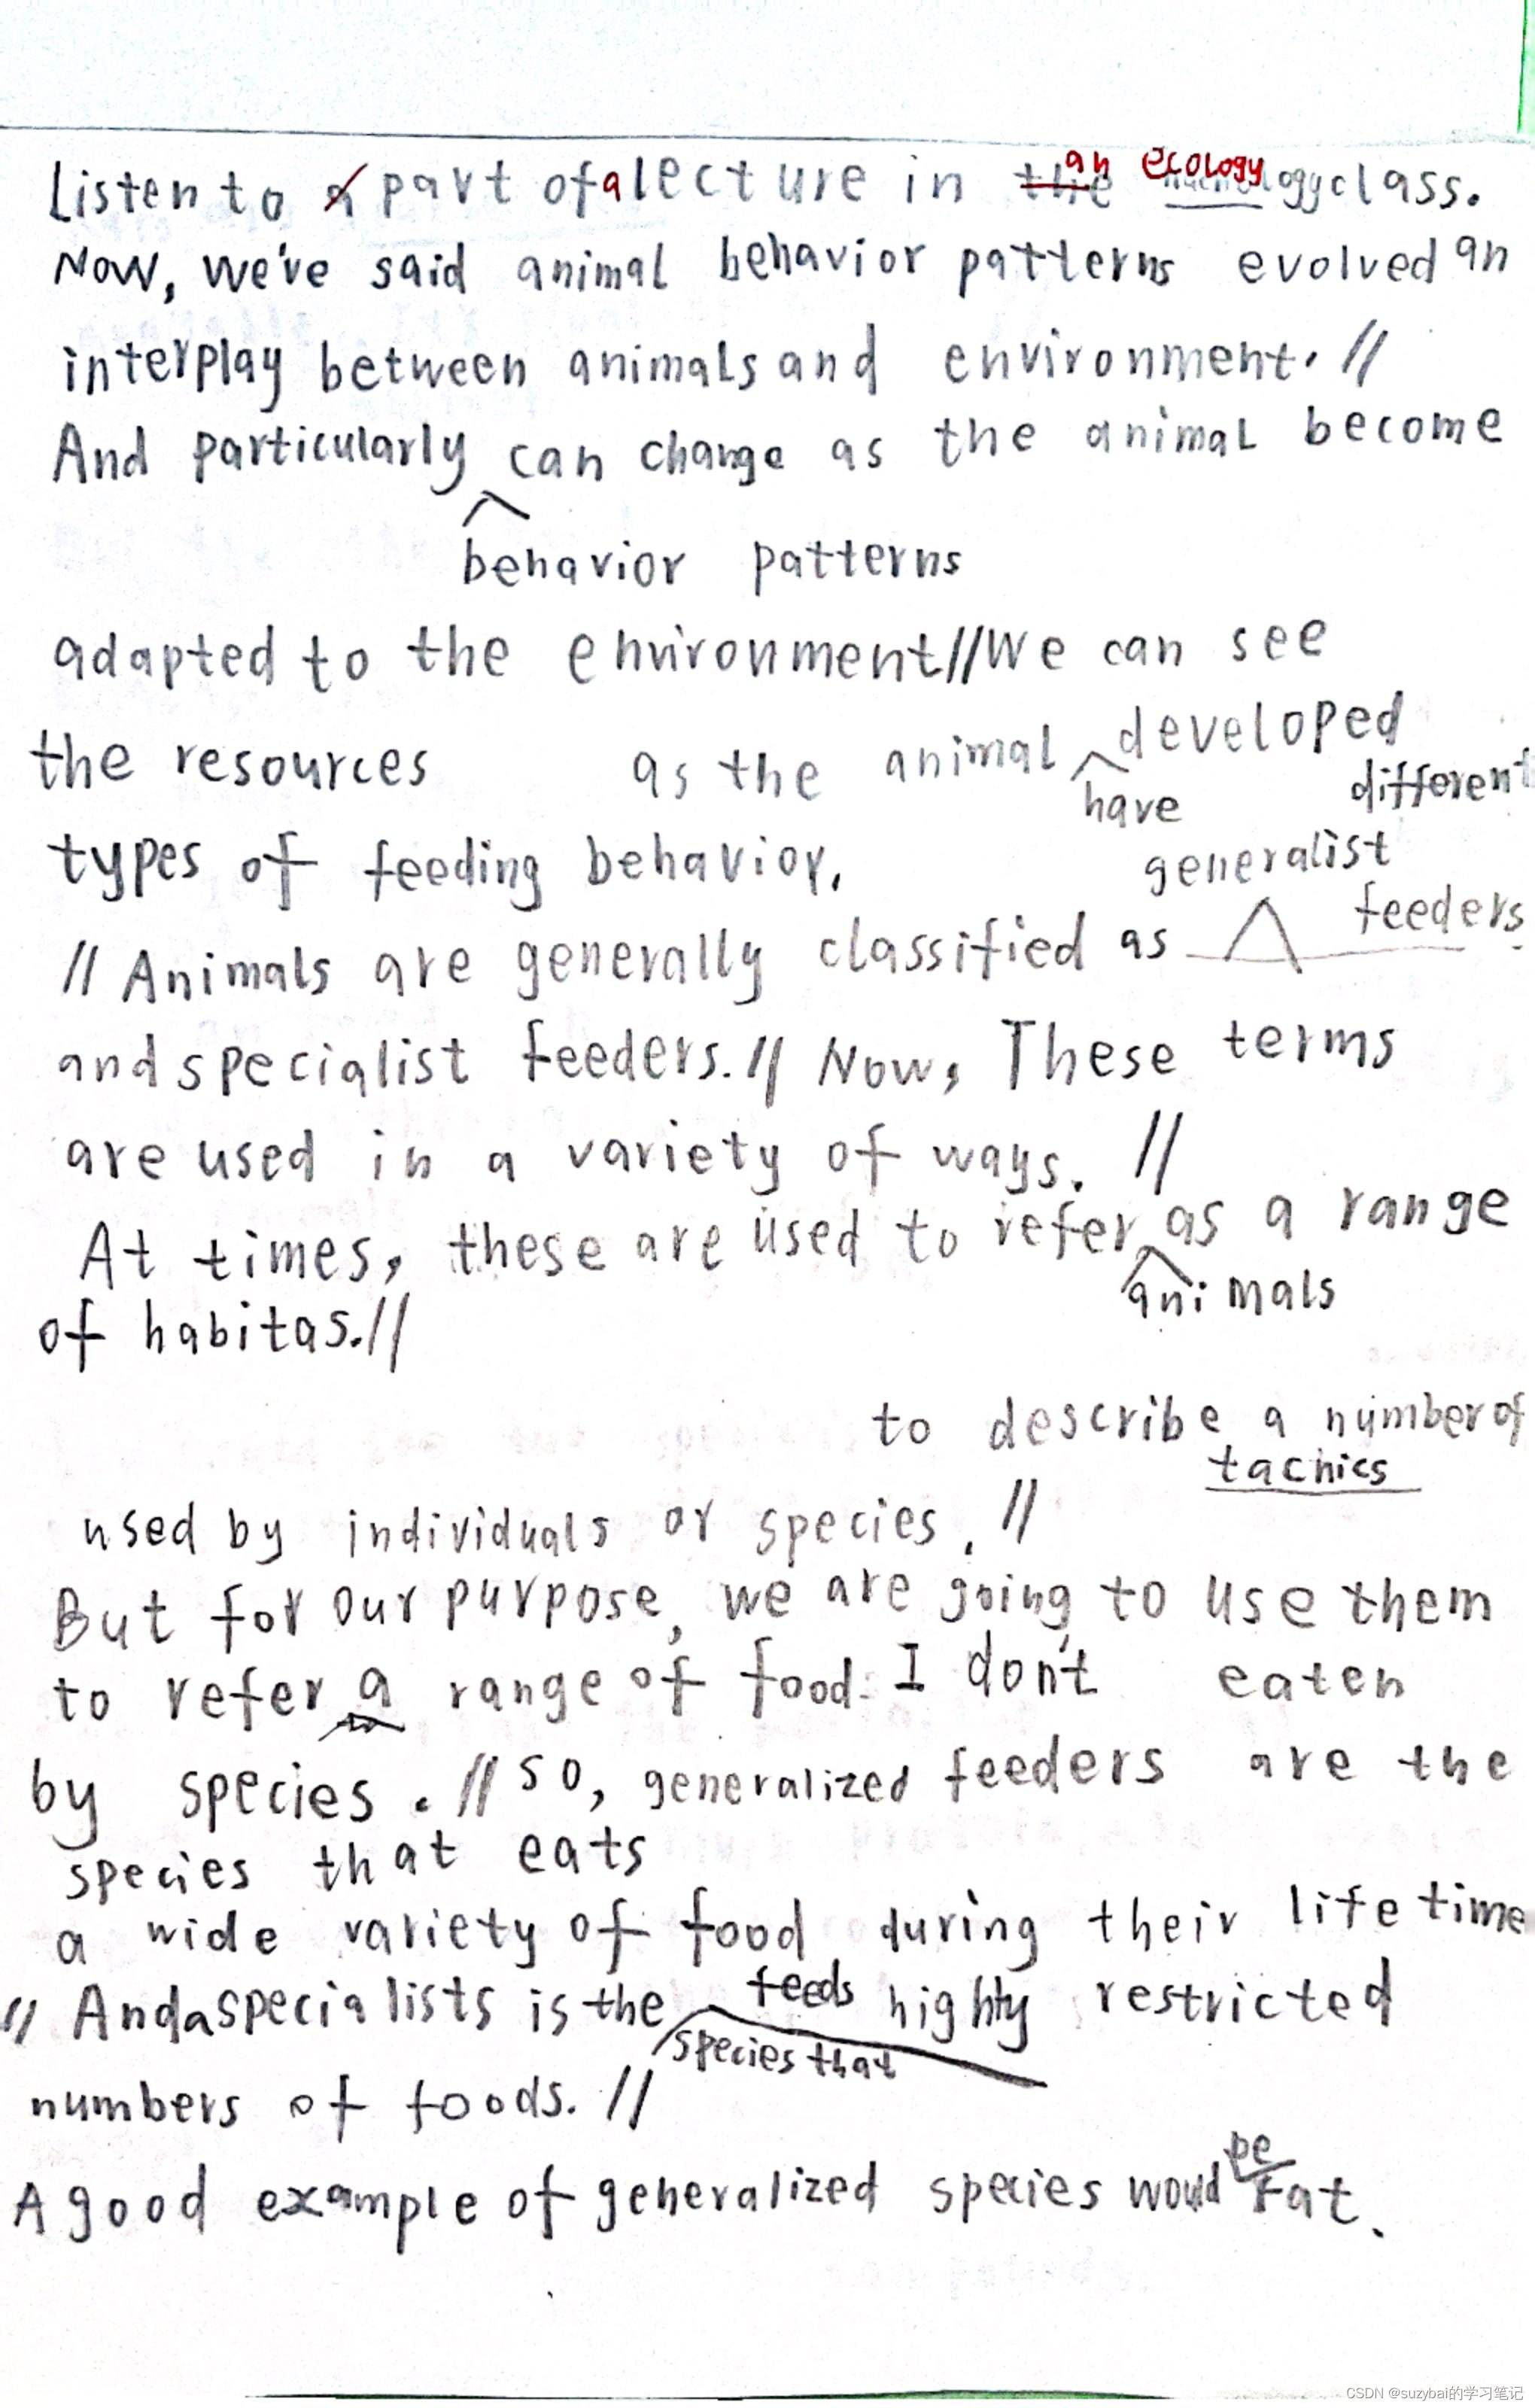 Listen to a part of a lecture in the an ecology class.
Now, we've said animal behavior patterns evolved an
interplay between animals and environment. //
And particularly can change as the animal become
behavior patterns
adapted to the environment // We can see
the resources as the animal have developed different
types of feeding behavior.
// Animals are generally classified as generalist feeders
and specialist feeders. // Now, These terms
are used in a variety of ways. //
At times, these are used to refer animals as a range
of habitas. //
to describe a number of
tacnics
used by individuals or species. //
But for our purpose, we are going to use them
to refer a range of food. I don't eaten
by species. // so, generalized feeders are the
species that eats
a wide variety of food during their life time
// And a specialists is the species that feeds highty restricted
numbers of foods. //
A good example of generalized species would be rat.
CSDN @suzybai的学习笔记